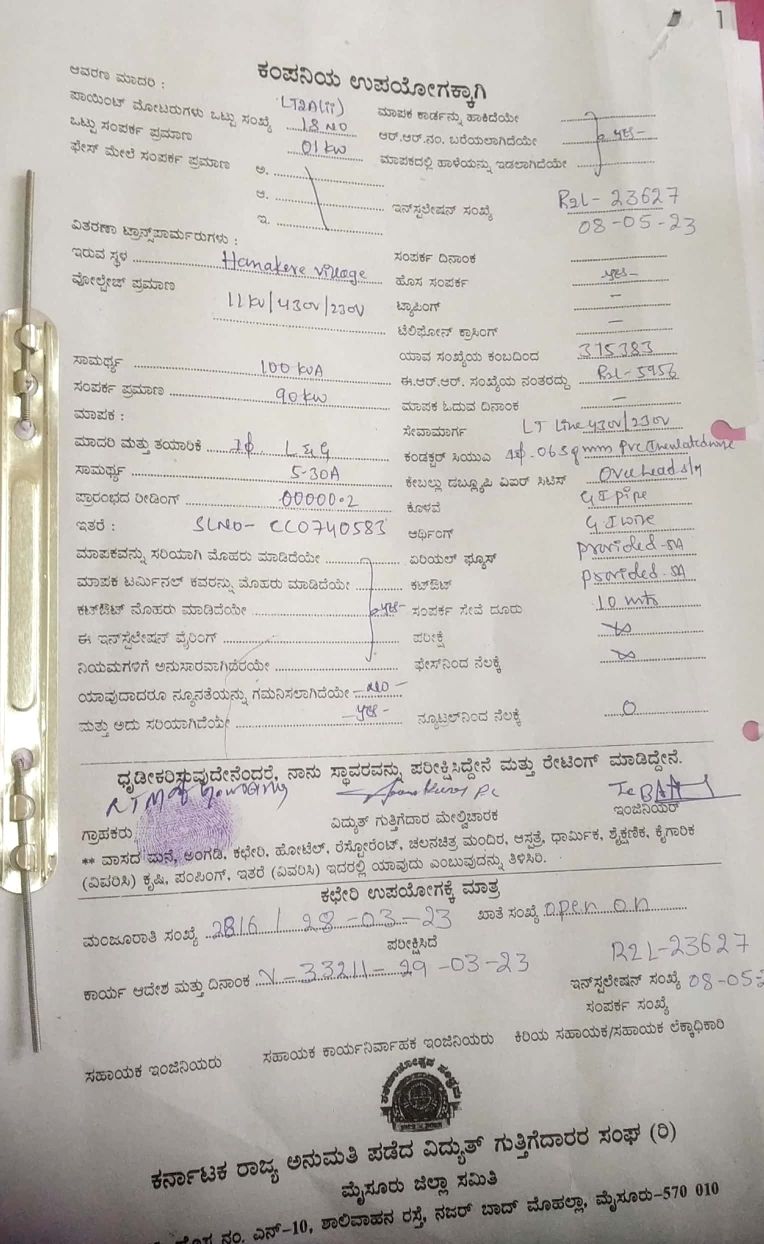 1
ಕಂಪನಿಯ ಉಪಯೋಗಕ್ಕಾಗಿ
ಆವರಣ ಮಾದರಿ : LT2A(ii) ಮಾಪಕ ಕಾರ್ಡನ್ನು ಹಾಕಿದೆಯೇ
ಪಾಯಿಂಟ್ ಮೋಟರುಗಳು ಒಟ್ಟು ಸಂಖ್ಯೆ 18 NO ಆರ್.ಆರ್.ನಂ. ಬರೆಯಲಾಗಿದೆಯೇ yes-
ಒಟ್ಟು ಸಂಪರ್ಕ ಪ್ರಮಾಣ 01 kw ಮಾಪಕದಲ್ಲಿ ಹಾಳೆಯನ್ನು ಇಡಲಾಗಿದೆಯೇ
ಫೇಸ್ ಮೇಲೆ ಸಂಪರ್ಕ ಪ್ರಮಾಣ ಅ.
ಆ. ಇನ್‌ಸ್ಟಲೇಷನ್ ಸಂಖ್ಯೆ R2L- 23627
ಇ. 08-05-23
ವಿತರಣಾ ಟ್ರಾನ್ಸ್‌ಪಾರ್ಮರುಗಳು :
ಇರುವ ಸ್ಥಳ Hanakere village ಸಂಪರ್ಕ ದಿನಾಂಕ
ವೋಲ್ಟೇಜ್ ಪ್ರಮಾಣ 11kv/430v/230v ಹೊಸ ಸಂಪರ್ಕ yes-
ಟ್ಯಾಪಿಂಗ್ —
ಟೆಲಿಫೋನ್ ಕ್ರಾಸಿಂಗ್ —
ಸಾಮರ್ಥ್ಯ 100 kVA ಯಾವ ಸಂಖ್ಯೆಯ ಕಂಬದಿಂದ 315383
ಸಂಪರ್ಕ ಪ್ರಮಾಣ 90 kw ಈ.ಆರ್.ಆರ್. ಸಂಖ್ಯೆಯ ನಂತರದ್ದು R2L-5956
ಮಾಪಕ : ಮಾಪಕ ಓದುವ ದಿನಾಂಕ —
ಸೇವಾಮಾರ್ಗ LT Line 430v/230v
ಮಾದರಿ ಮತ್ತು ತಯಾರಿಕೆ 1ф. L&G ಕಂಡಕ್ಟರ್ ಸಿಯುವಿ 1ф.06 sqmm Pvc Insulated wire
ಸಾಮರ್ಥ್ಯ 5-30A ಕೇಬಲ್ಲು ದಬ್ಲ್ಯೂಪಿ ವಿಐರ್ ಸಿಟಿಸ್ Overhead s/m
ಪ್ರಾರಂಭದ ರೀಡಿಂಗ್ 00000.2 ಕೊಳವೆ G I pipe
ಇತರೆ : SLNO- CC0740583 ಆರ್ಥಿಂಗ್ G I wire
ಮಾಪಕವನ್ನು ಸರಿಯಾಗಿ ಮೊಹರು ಮಾಡಿದೆಯೇ ಏರಿಯಲ್ ಫ್ಯೂಸ್ provided-5A
ಮಾಪಕ ಟರ್ಮಿನಲ್ ಕವರನ್ನು ಮೊಹರು ಮಾಡಿದೆಯೇ ಕಟ್‌ಔಟ್ provided.5A
ಕಟ್‌ಔಟ್ ಮೊಹರು ಮಾಡಿದೆಯೇ yes- ಸಂಪರ್ಕ ಸೇವೆ ದೂರು 10 mts
ಈ ಇನ್‌ಸ್ಟಲೇಷನ್ ವೈರಿಂಗ್ ಪರೀಕ್ಷೆ ∞
ನಿಯಮಗಳಿಗೆ ಅನುಸಾರವಾಗಿದೆರೆಯೇ ಫೇಸ್‌ನಿಂದ ನೆಲಕ್ಕೆ ∞
ಯಾವುದಾದರೂ ನ್ಯೂನತೆಯನ್ನು ಗಮನಿಸಲಾಗಿದೆಯೇ -NO-
ಮತ್ತು ಅದು ಸರಿಯಾಗಿದೆಯೇ -yes- ನ್ಯೂಟಲ್‌ನಿಂದ ನೆಲಕ್ಕೆ 0
ಧೃಡೀಕರಿಸುವುದೇನೆಂದರೆ, ನಾನು ಸ್ಥಾವರವನ್ನು ಪರೀಕ್ಷಿಸಿದ್ದೇನೆ ಮತ್ತು ರೇಟಿಂಗ್ ಮಾಡಿದ್ದೇನೆ.
ಗ್ರಾಹಕರು ವಿದ್ಯುತ್ ಗುತ್ತಿಗೆದಾರ ಮೇಲ್ವಿಚಾರಕ ಇಂಜಿನಿಯರ್
** ವಾಸದ ಮನೆ, ಅಂಗಡಿ, ಕಛೇರಿ, ಹೋಟೆಲ್, ರೆಸ್ಟೋರೆಂಟ್, ಚಲನಚಿತ್ರ ಮಂದಿರ, ಆಸ್ಪತ್ರೆ, ಧಾರ್ಮಿಕ, ಶೈಕ್ಷಣಿಕ, ಕೈಗಾರಿಕ
(ವಿವರಿಸಿ) ಕೃಷಿ, ಪಂಪಿಂಗ್, ಇತರೆ (ವಿವರಿಸಿ) ಇದರಲ್ಲಿ ಯಾವುದು ಎಂಬುವುದನ್ನು ತಿಳಿಸಿರಿ.
ಕಛೇರಿ ಉಪಯೋಗಕ್ಕೆ ಮಾತ್ರ
ಮಂಜೂರಾತಿ ಸಂಖ್ಯೆ 2816 / 28-03-23 ಖಾತೆ ಸಂಖ್ಯೆ open on
ಪರೀಕ್ಷಿಸಿದೆ
ಕಾರ್ಯ ಆದೇಶ ಮತ್ತು ದಿನಾಂಕ N-33211-29-03-23 R2L-23627
ಇನ್‌ಸ್ಟಲೇಷನ್ ಸಂಖ್ಯೆ 08-05-2
ಸಂಪರ್ಕ ಸಂಖ್ಯೆ
ಸಹಾಯಕ ಇಂಜಿನಿಯರು ಸಹಾಯಕ ಕಾರ್ಯನಿರ್ವಾಹಕ ಇಂಜಿನಿಯರು ಕಿರಿಯ ಸಹಾಯಕ/ಸಹಾಯಕ ಲೆಕ್ಕಾಧಿಕಾರಿ
ಕರ್ನಾಟಕ ರಾಜ್ಯ ಅನುಮತಿ ಪಡೆದ ವಿದ್ಯುತ್ ಗುತ್ತಿಗೆದಾರರ ಸಂಘ (ರಿ)
ಮೈಸೂರು ಜಿಲ್ಲಾ ಸಮಿತಿ
ಹೊಸ ನಂ. ಎನ್-10, ಶಾಲಿವಾಹನ ರಸ್ತೆ, ನಜರ್ ಬಾದ್ ಮೊಹಲ್ಲಾ, ಮೈಸೂರು-570 010